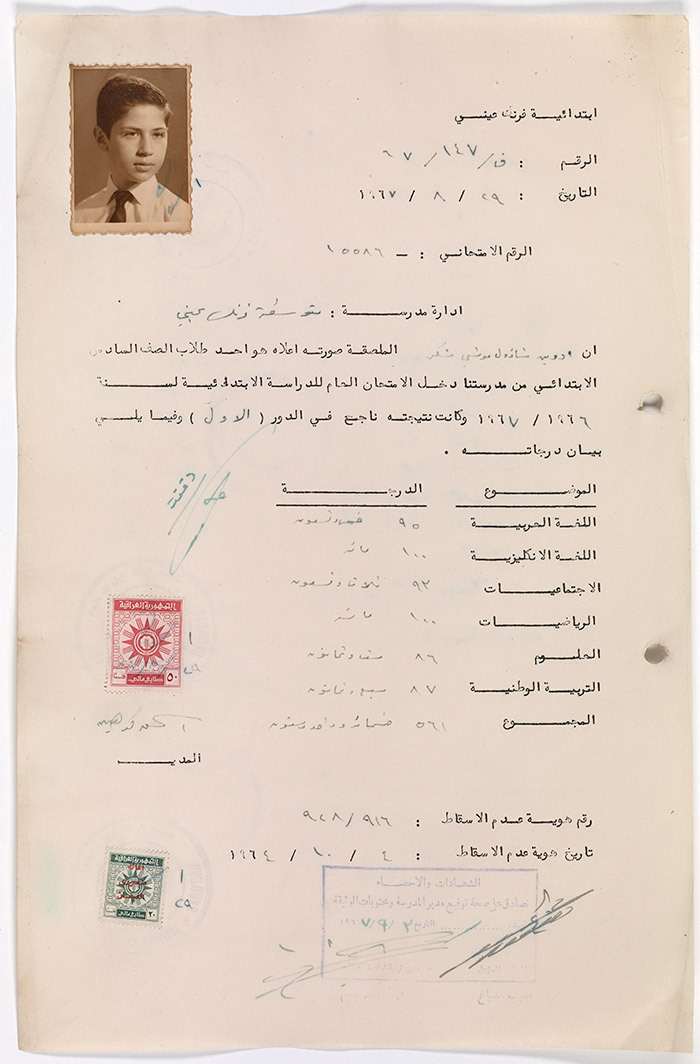 ابتدائية فرنك عيني
الرقم : ف/ ١٤٧ / ٦٧
التاريخ : ٢٩ / ٨ / ١٩٦٧
الرقم الامتحاني : - ١٥٥٨٦
ادارة مدرسة : متوسطة فرنك عيني
ان الملصقة صورته اعلاه هو احد طلاب الصف السادس
الابتدائي من مدرستنا دخل الامتحان العام للدراسة الابتدائية لسنة
١٩٦٦ / ١٩٦٧ وكانت نتيجته ناجح في الدور ( الاول ) وفيما يلي
بيان درجاته .
الموضوع الدرجة
اللغة العربية ٩٥ خمسة وتسعون
اللغة الانكليزية ١٠٠ مائة
الاجتماعيات ٩٣ ثلاث وتسعون
الرياضيات ١٠٠ مائة
العلوم ٨٦ ستة وثمانون
التربية الوطنية ٨٧ سبع وثمانون
المجموع ٥٦١ خمسمائة وواحد وستون
الجمهورية العراقية
٥٠
١
٢٩
المدير
رقم هوية عدم الاسقاط : ٩١٦/ ٩٢٨
تاريخ هوية عدم الاسقاط : ٤ / ١٠ / ١٩٦٤
الجمهورية العراقية
٢٠
١
٢٩
الشهادات والاحصاء
نصادق على صحة توقيع مدير المدرسة ومحتويات الوثيقة
التاريخ ٢ /٩ /١٩٦٧